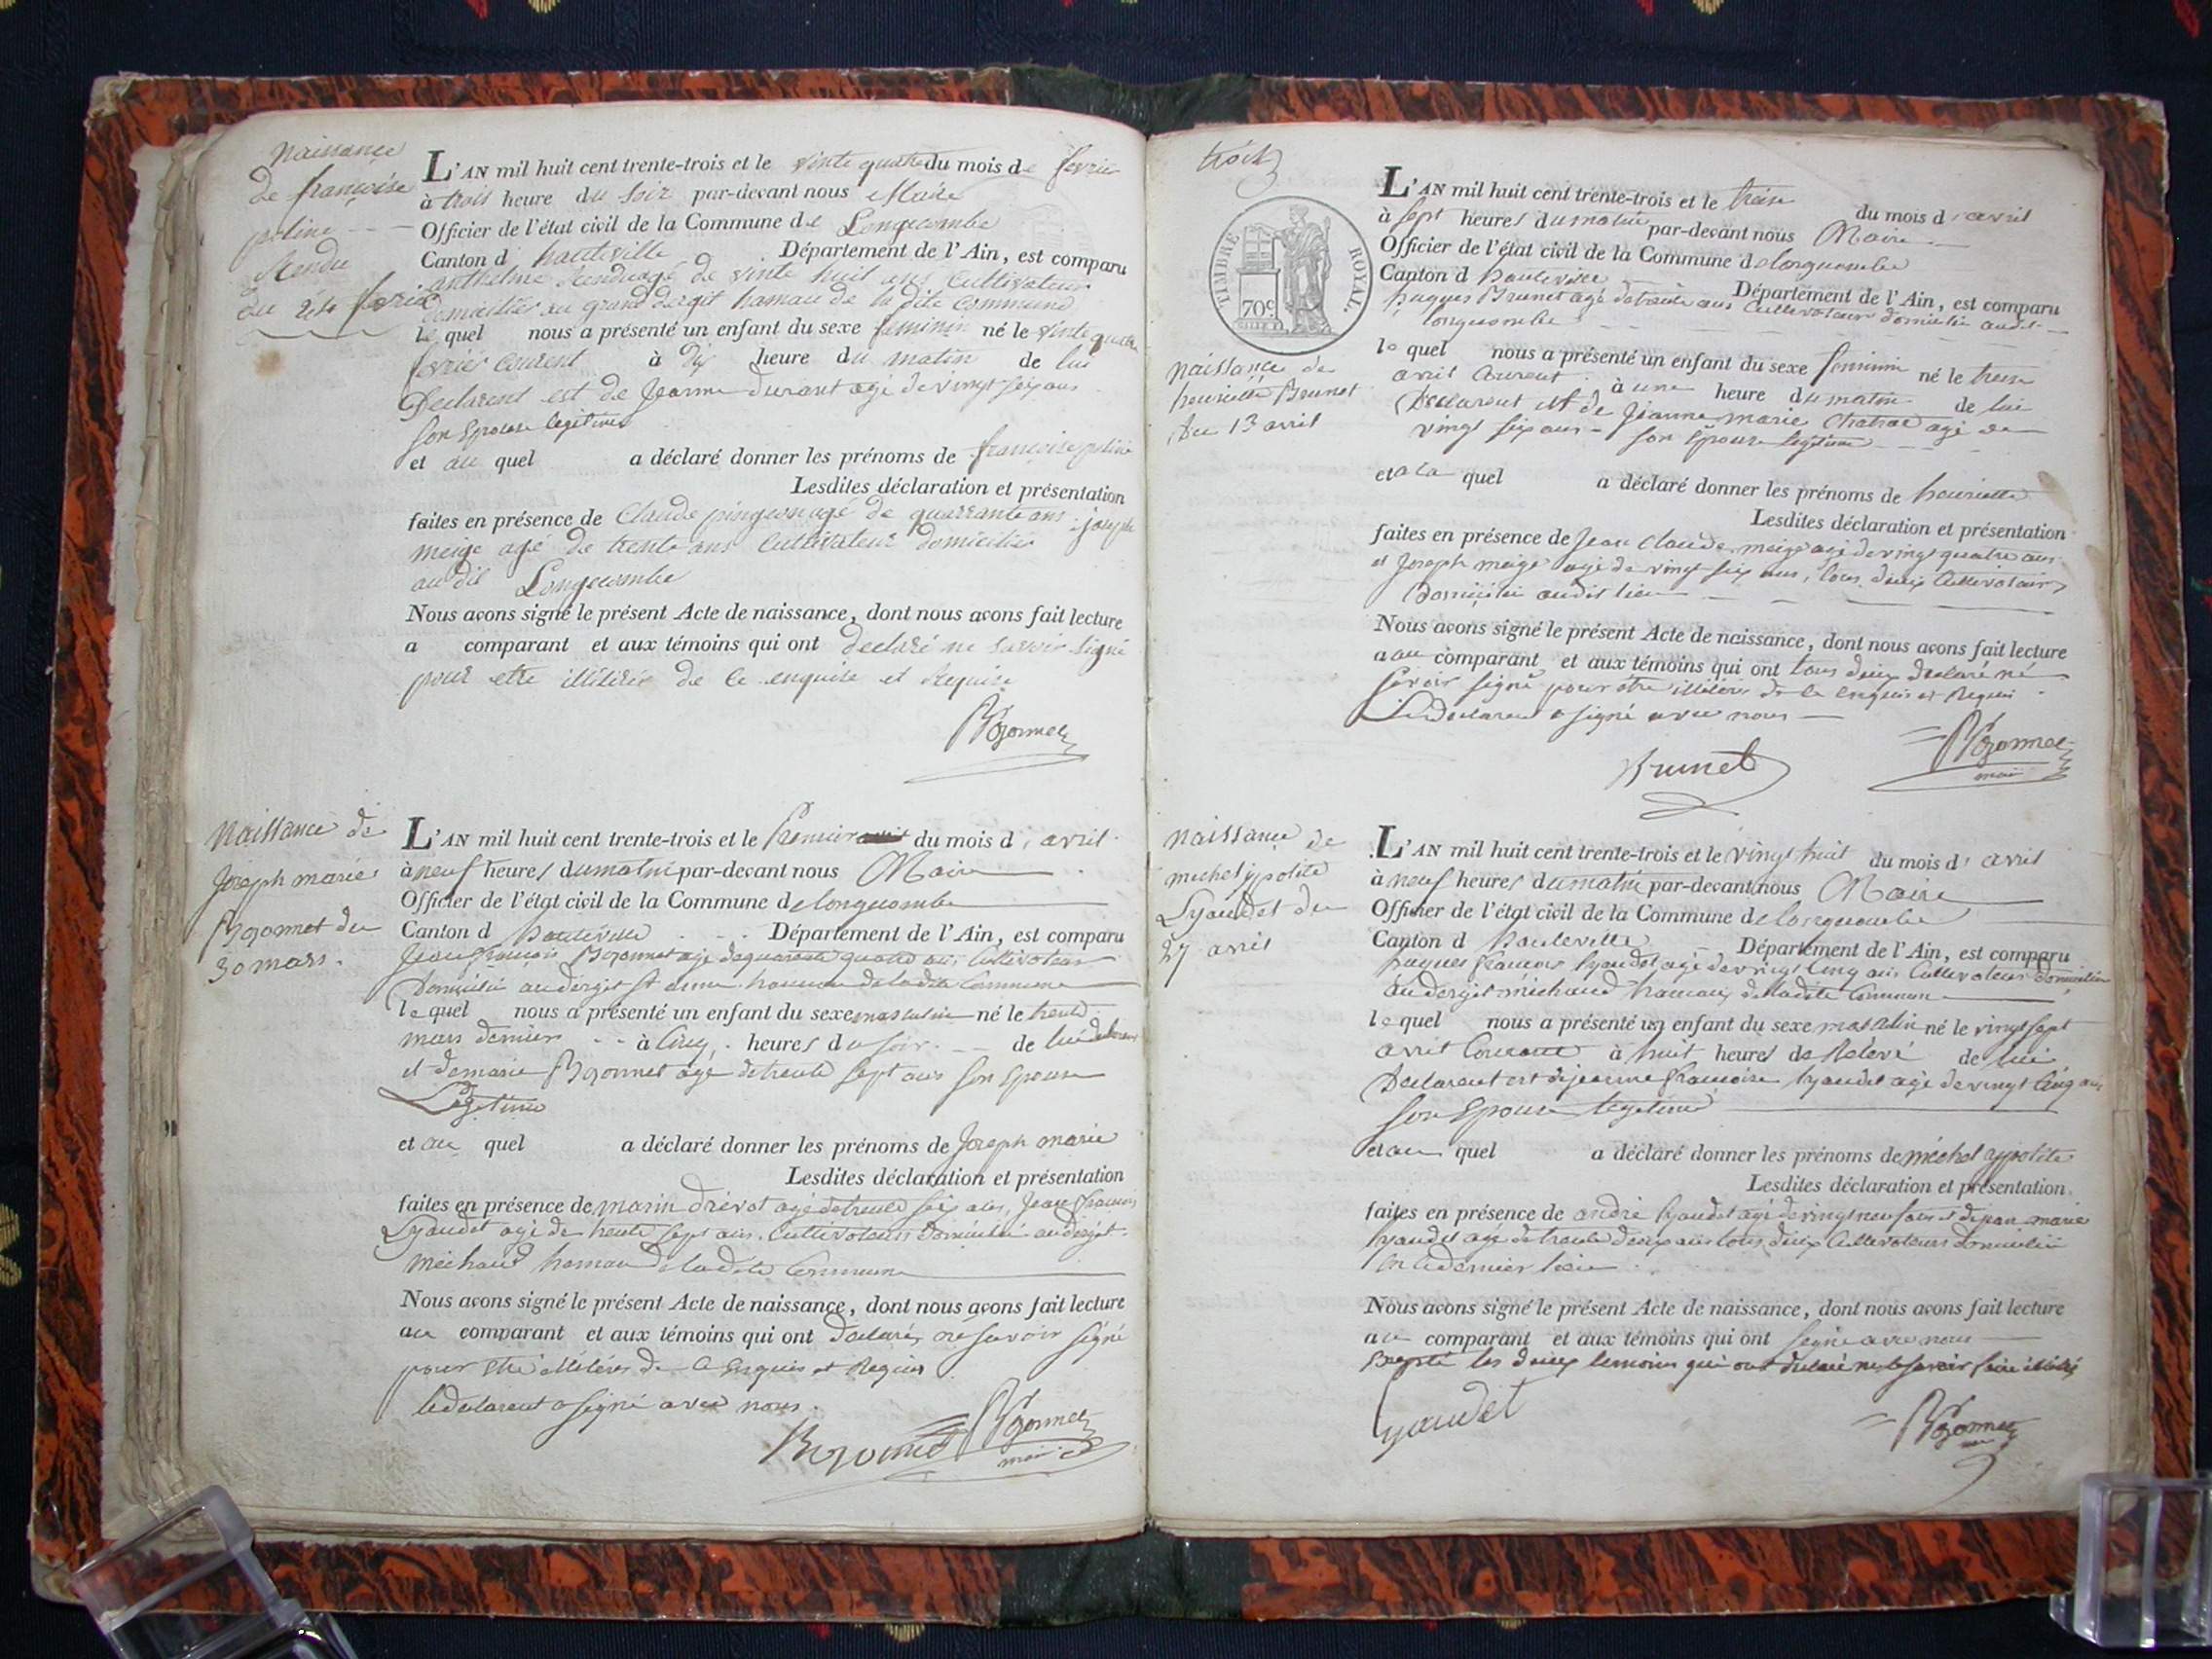 naissance
de françoise
poline
Rendu
du 24 fevrier
L'AN mil huit cent trente-trois et le vinte quatre du mois de fevrier
à trois heure du soir par-devant nous Maire
Officier de l'état civil de la Commune de Longecombe
Canton d hauteville Département de l'Ain, est comparu
anthelme Rendu agé de vinte huit ans Cultivateur
domicilié au grand dergit hamau de la dite Commune
le quel nous a présenté un enfant du sexe feminin né le vinte quatre
fevrier courent à dix heure du matin de lui
Declarent est de Jeanne durant agé de vingt six ans
son Epouse legitime
et au quel a déclaré donner les prénoms de françoise poline
Lesdites déclaration et présentation
faites en présence de Claude pingeon agé de quarrante ans joseph
meige agé de trente ans Cultivateur domicilié
au dit Longecombe
Nous avons signé le présent Acte de naissance, dont nous avons fait lecture
a comparant et aux témoins qui ont declaré ne savoir signé
pour etre illitéré de ce enquise et Requise
Bozonnet
Naissance de
Joseph marie
Bozonnet du
30 mars.
L'AN mil huit cent trente-trois et le Premier du mois d'avril
à neuf heures du matin par-devant nous Maire
Officier de l'état civil de la Commune de longecombe
Canton d hauteville Département de l'Ain, est comparu
Jean françois Bozonnet agé de quarante quatre ans Cultivateur
Domicilié au dergit st anne hameau de ladite Commune
le quel nous a présenté un enfant du sexe masculin né le trente
mars dernier à Cinq heures du soir de lui declarent
et de marie Bozonnet agé de trente sept ans son Epouse
Legitime
et au quel a déclaré donner les prénoms de Joseph marie
Lesdites déclaration et présentation
faites en présence de marin drevot agé de trente six ans, Jean françois
Lyaudet agé de trente sept ans, Cultivateurs Domicilié au dergit
michaud hamau de ladite Commune
Nous avons signé le présent Acte de naissance, dont nous avons fait lecture
au comparant et aux témoins qui ont declaré ne savoir signé
pour etre illitérés de ce Enquis et Requis
le declarent a signé avec nous.
Bozonnet Bozonnet
maire
trois
TIMBRE ROYAL.
70c
naissance de
henriette Brunet
du 13 avril
L'AN mil huit cent trente-trois et le treise du mois d'avril
à sept heures du matin par-devant nous Maire
Officier de l'état civil de la Commune de longecombe
Canton d hauteville Département de l'Ain, est comparu
hugues Brunet agé de trente ans Cultivateur domicilié audit
longecombe
le quel nous a présenté un enfant du sexe feminin né le treise
avril Courent à une heure du matin de lui
Declarent et de Jeanne marie Chatrac agé de
vingt six ans son Epouse legitime
et a la quel a déclaré donner les prénoms de henriette
Lesdites déclaration et présentation
faites en présence de Jean Claude meige agé de vingt quatre ans
et Joseph meige agé de vingt six ans, tous deux Cultivateurs
Domicilié audit lieu
Nous avons signé le présent Acte de naissance, dont nous avons fait lecture
a au comparant et aux témoins qui ont tous deux declaré né
savoir signé pour etre illitéré de ce enquis et Requis
Le declarent a signé avec nous
Brunet
Bozonnet
maire
naissance de
michel ypolite
Lyaudet du
27 avril
L'AN mil huit cent trente-trois et le vingt huit du mois d'avril
à neuf heures du matin par-devant nous Maire
Officier de l'état civil de la Commune de longecombe
Canton d hauteville Département de l'Ain, est comparu
hugues francois lyaudet agé de vingt Cinq ans Cultivateur domicilié
au dergit michaud hamau de ladite Commune
le quel nous a présenté un enfant du sexe masculin né le vingt sept
avril Courant à huit heures de Relevé de lui
Declarent et de jeanne francoise lyaudet agé de vingt Cinq ans
son Epouse legitime
et au quel a déclaré donner les prénoms de michel ypolite
Lesdites déclaration et présentation
faites en présence de andré lyaudet agé de vingt neuf ans et de jean marie
lyaudet agé de trente deux ans tous deux Cultivateurs domicilié
en ce dernier lieu
Nous avons signé le présent Acte de naissance, dont nous avons fait lecture
au comparant et aux témoins qui ont signé avec nous
Excepté les deux temoins qui ont declaré ne le savoir faire illitéré
Lyaudet
Bozonnet